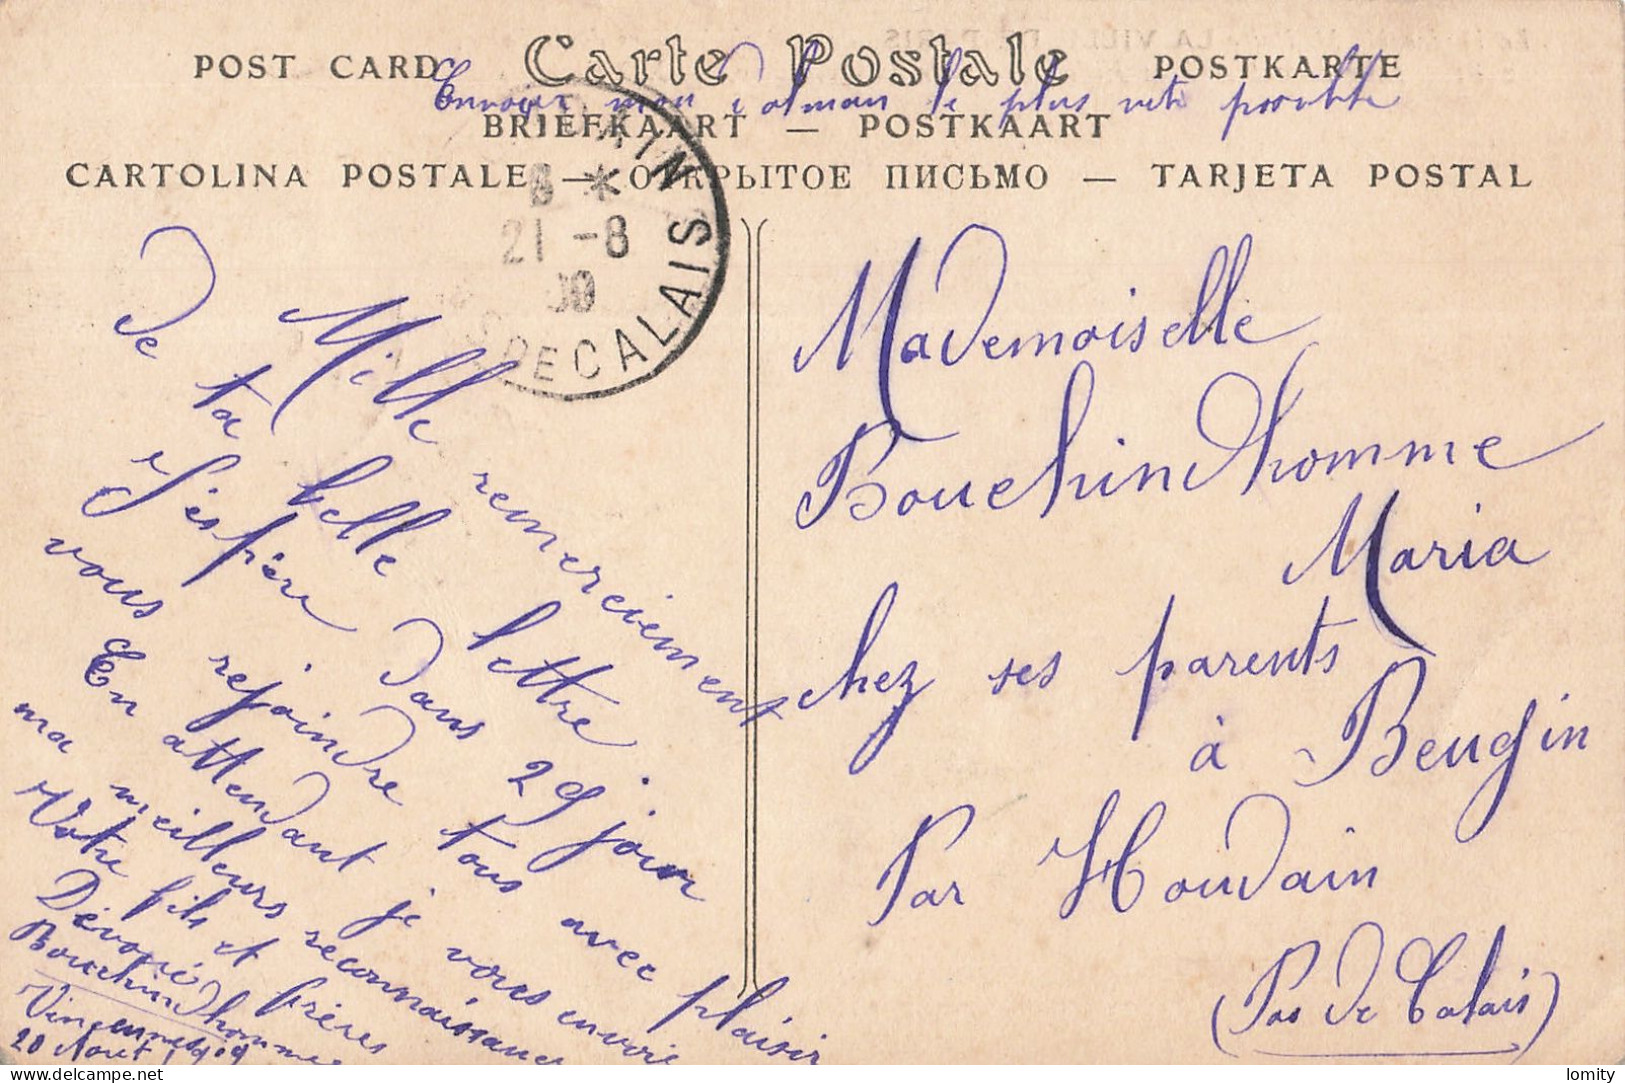 POST CARD Carte Postale POSTKARTE
Envoyer mon colman le plus vite possible
BRIEFKAART — POSTKAART
CARTOLINA POSTALE — ОТКРЫТОЕ ПИСЬМО — TARJETA POSTAL
21 -8
DE CALAIS
Mille remerciement
De ta belle lettre
J'éspère dans 29 jour
vous rejoindre tous avec plaisir
En attendant je vous envoie
ma meilleurs reconnaissance
Votre fils et frères
Dévoué
Bouchindhomme
Vincennes
20 Aout 1909
Mademoiselle
Bouchindhomme
Maria
chez ses parents
à Beugin
Par Houdain
(Pas de Calais)
lomity